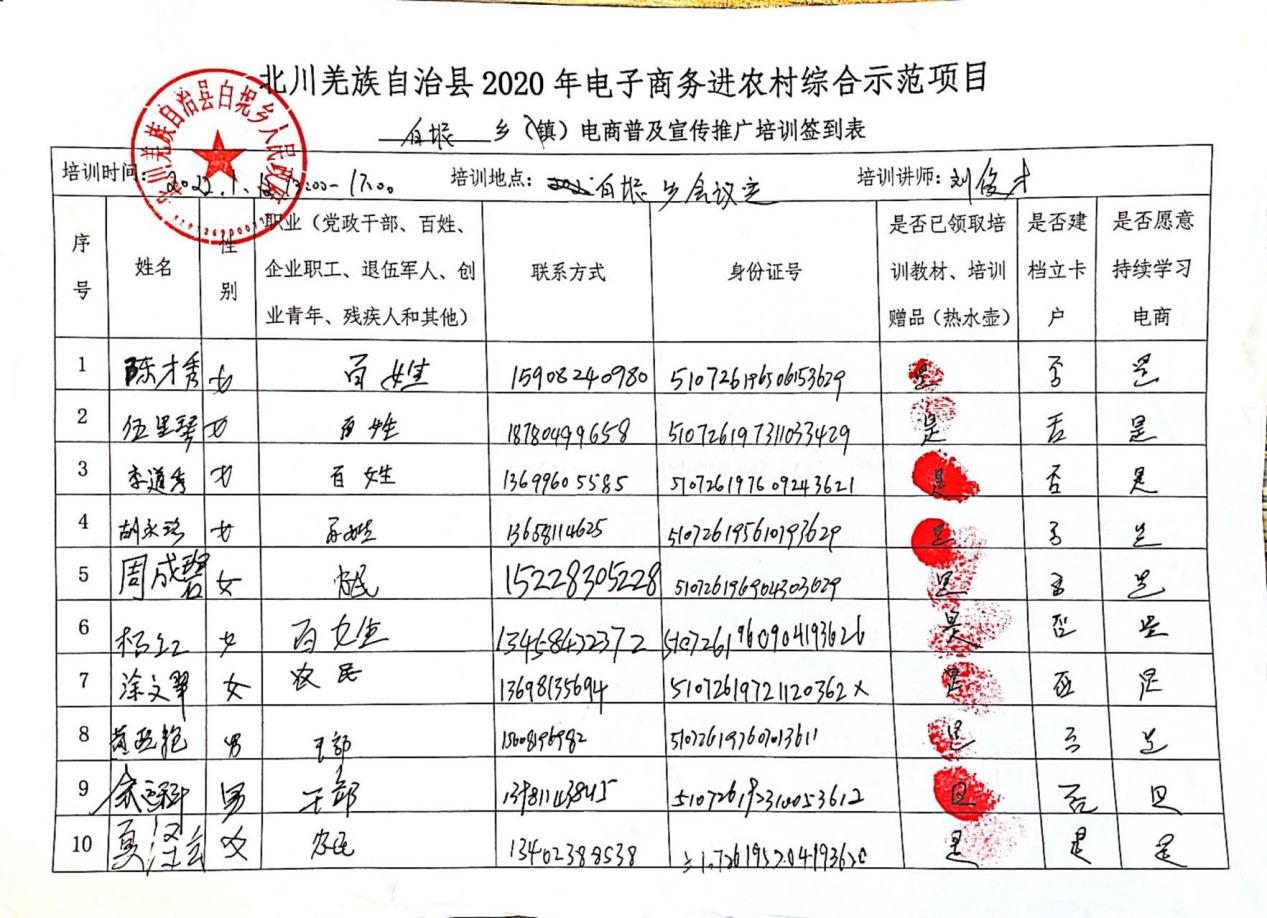 北川羌族自治县2020年电子商务进农村综合示范项目
白坭 乡（镇）电商普及宣传推广培训签到表
北川羌族自治县白坭乡人民政府
培训时间： 13:00-17:00 培训地点： 白坭乡会议室 培训讲师：刘俊才
序号 姓名 性别 职业（党政干部、百姓、企业职工、退伍军人、创业青年、残疾人和其他） 联系方式 身份证号 是否已领取培训教材、培训赠品（热水壶） 是否建档立卡户 是否愿意持续学习电商
1 陈才秀 女 百姓 15908240980 510726196506153629 是 否 是
2 女 百姓 18780499658 510726197311033429 是 否 是
3 李道秀 女 百姓 13699605585 510726197609243621 是 否 是
4 胡永 女 百姓 13658114625 510726195610193629 是 否 是
5 周成碧 女 农民 15228305228 510726196904303629 是 否 是
6 女 百姓 13458422372 是 否 是
7 涂文翠 女 农民 13698135694 51072619721120362X 是 否 是
8 男 干部 是 否 是
9 男 干部 是 否 是
10 女 农民 13402388538 是 是 是